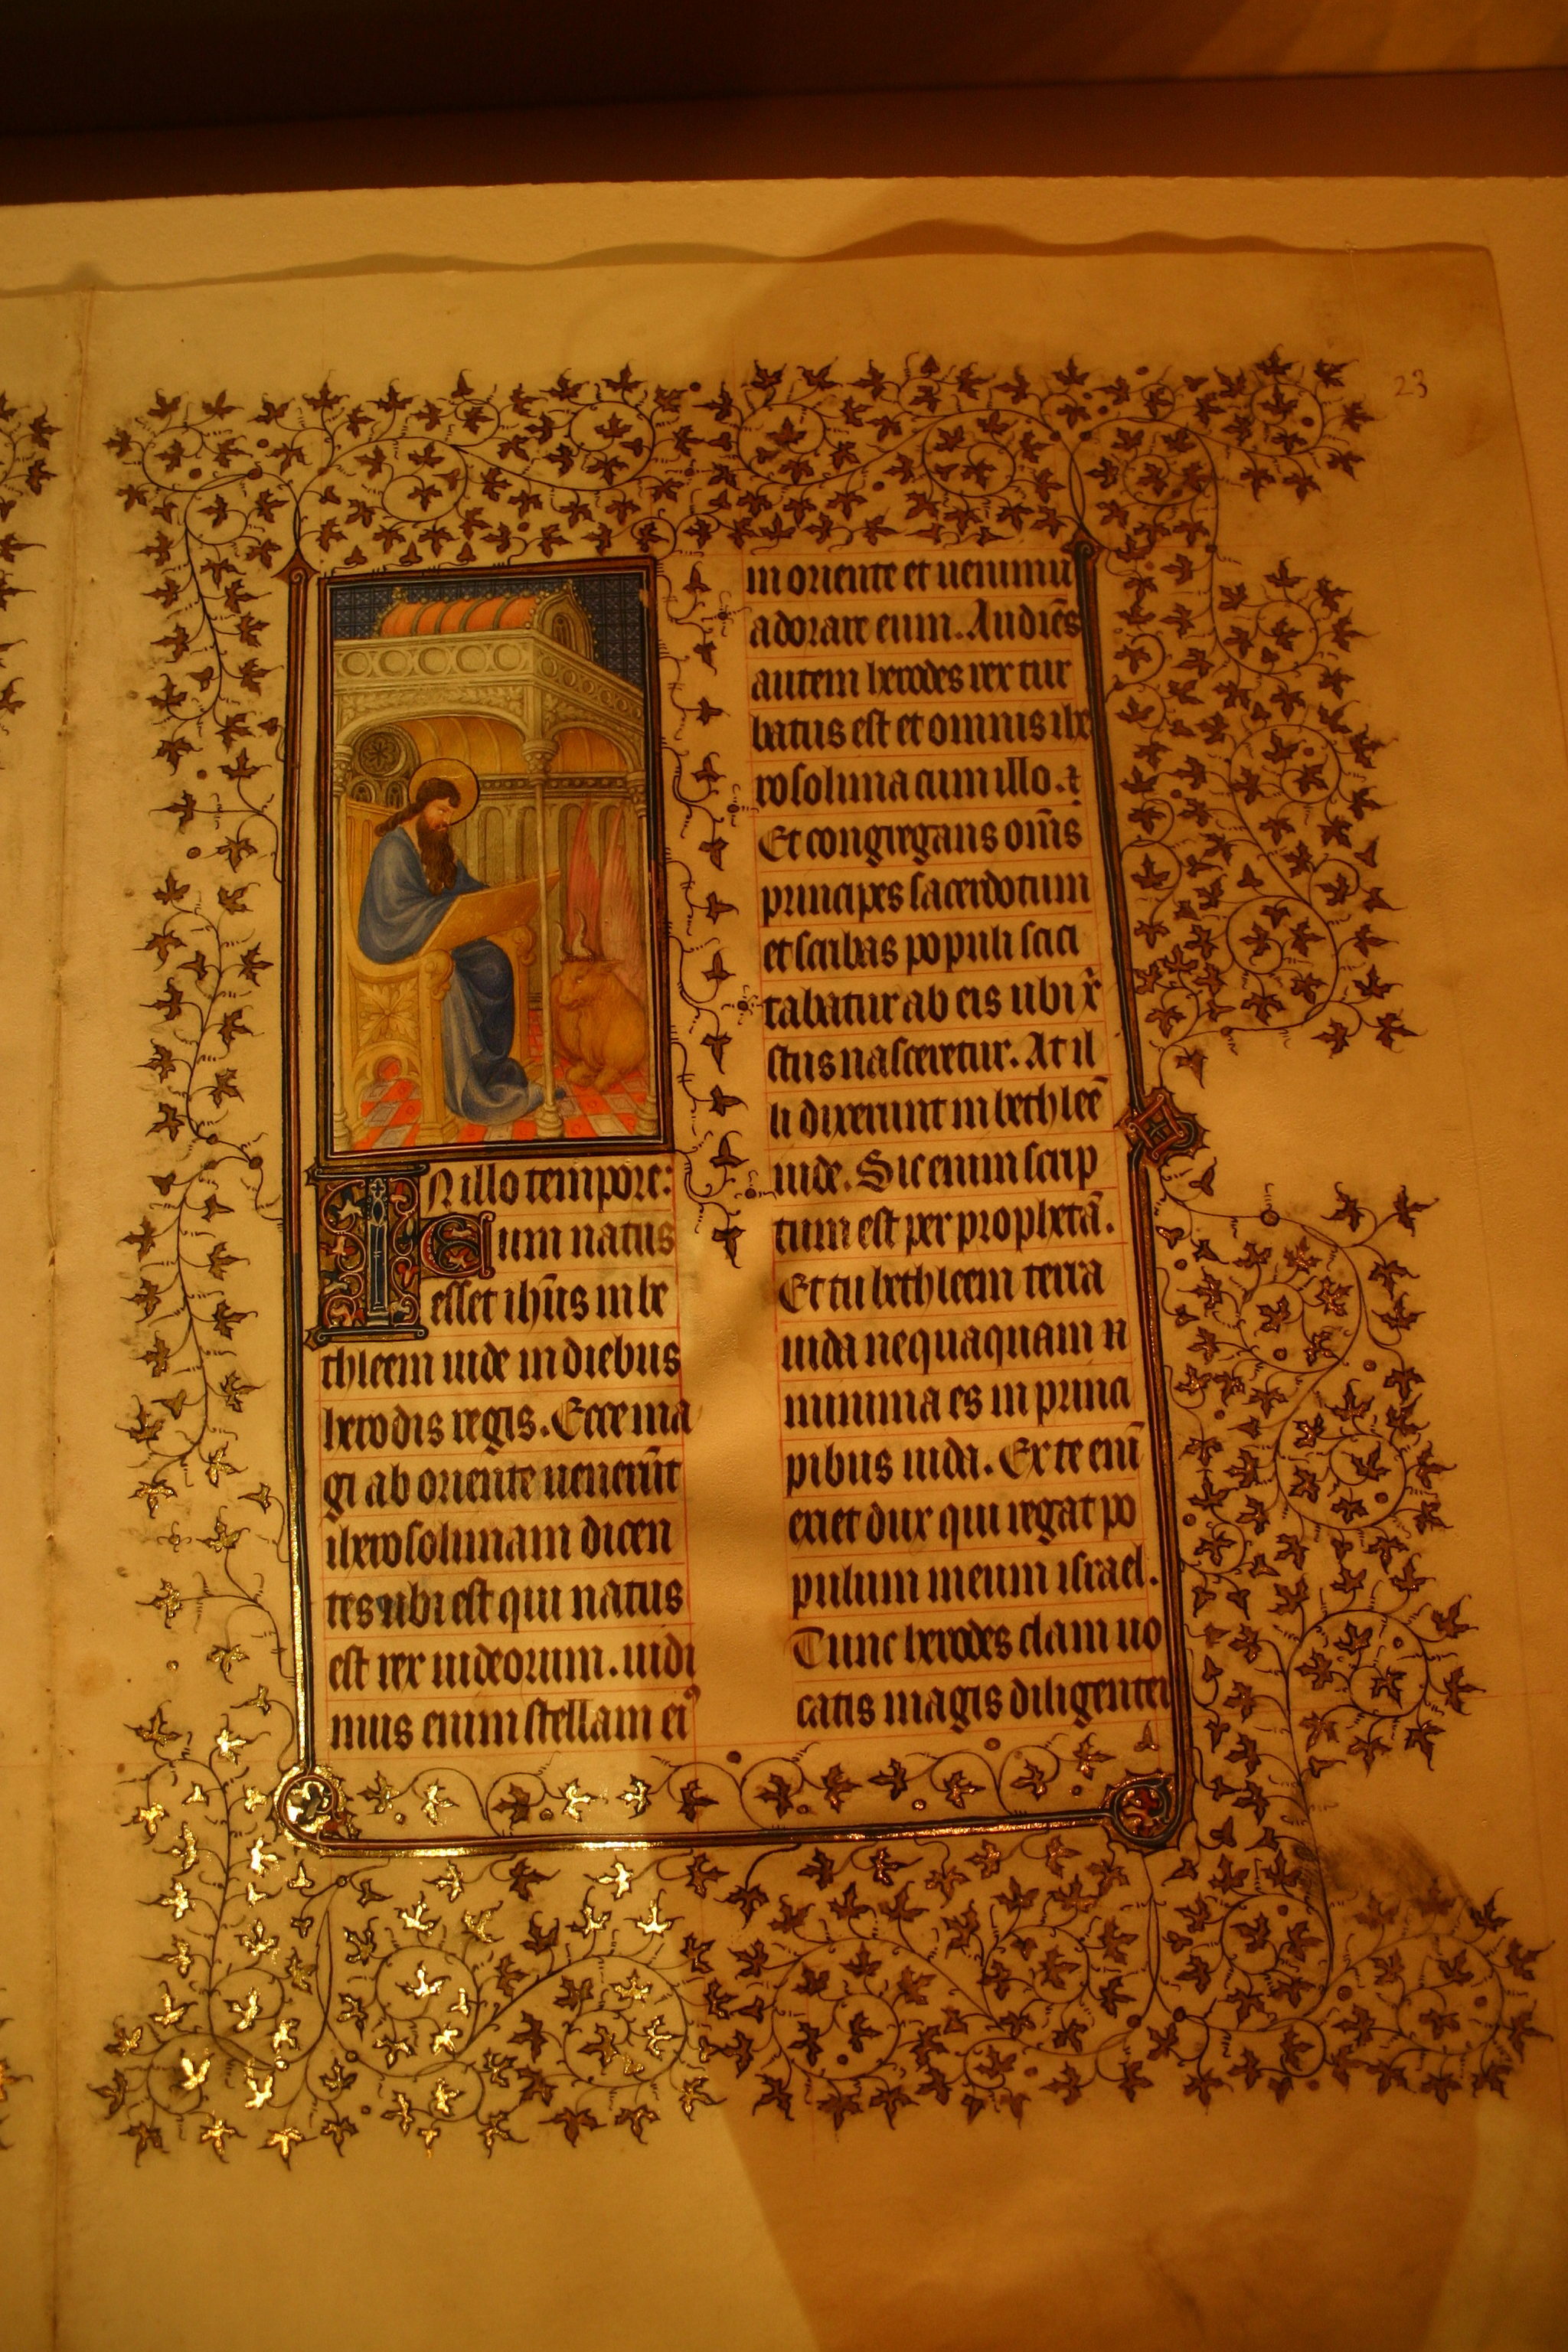 23
In illo tempore:
Cum natus
esset ihūs in be
thleem iude in diebus
herodis regis. Ecce ma
gi ab oriente uenerūt
iherosolimam dicen
tes ubi est qui natus
est rex iudeorum. uidi
mus enim stellam eiꝰ
in oriente et uenimu
adorare eum. Audiēs
autem herodes rex tur
batus est et omnis ihe
rosolima cum illo. ⁊
Et congregans om̄s
principes sacerdotum
et scribas populi scici
tabatur ab eis ubi xp̄
stus nasceretur. At il
li dixerunt in bethleē
iude. Sic enim scrip
tum est per prophetā.
Et tu bethleem terra
iuda nequaquam n
minima es in princi
pibus iuda. Ex te eni̅
exiet dux qui regat po
pulum meum israel.
Tunc herodes clam uo
catis magis diligenter